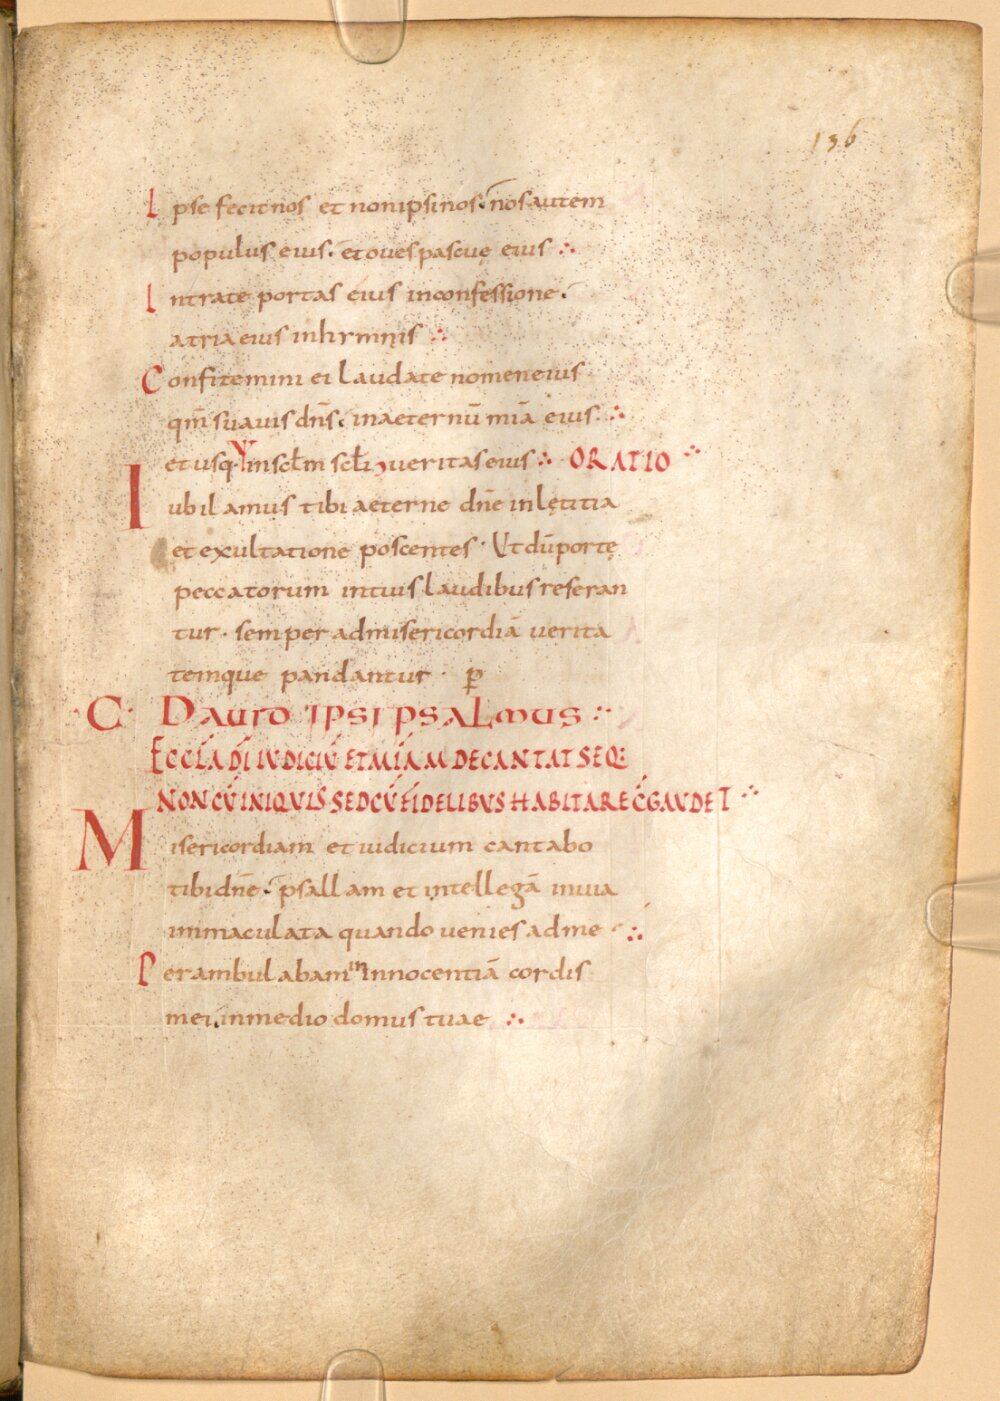 136
Ipse fecit nos et non ipsi nos. nos autem
populus eius. et oues pascuę eius
Intrate portas eius in confessione.
atria eius in hymnis
Confitemini ei laudate nomen eius
qm̄ suauis dn̄s. in aeternū mīa eius.
et usq· in scl̄m scl̄i ueritas eius ORATIO
Iubilamus tibi aeterne dn̄e in lętitia
et exultatione poscentes· Ut dū portę
peccatorum intuis laudibus referan
tur· semper ad misericordiā uerita
temque pandantur· ꝑ
·C· DAUID IPSI PSALMUS
ECCLĀ DĪ IUDICIŪ ET MĪAM DECANTAT SEQ:
NON CŪ INIQUIS SED CŪ FIDELIBUS HABITARE C̄GAUDET
Misericordiam et iudicium cantabo
tibi dn̄e. psallam et intellegā in uia
immaculata quando uenies ad me
Perambulabam in innocentiā cordis
mei. in medio domus tuae